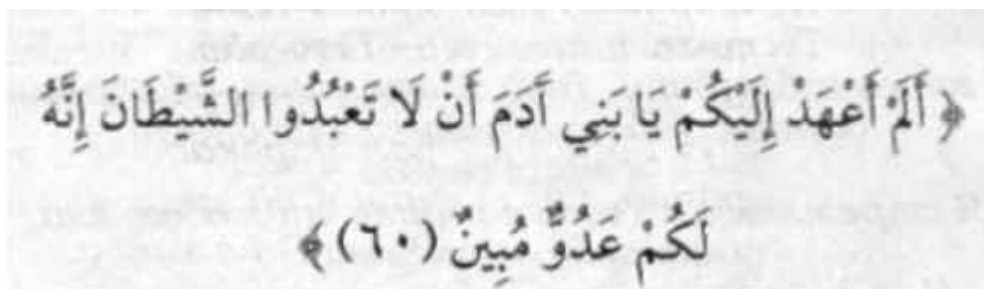 ﴿ أَلَمْ أَعْهَدْ إِلَيْكُمْ يَا بَنِي أَدَمَ أَنْ لَا تَعْبُدُوا الشَّيْطَانَ إِنَّهُ
لَكُمْ عَدُوٌّ مُبِينٌ (٦٠) ﴾